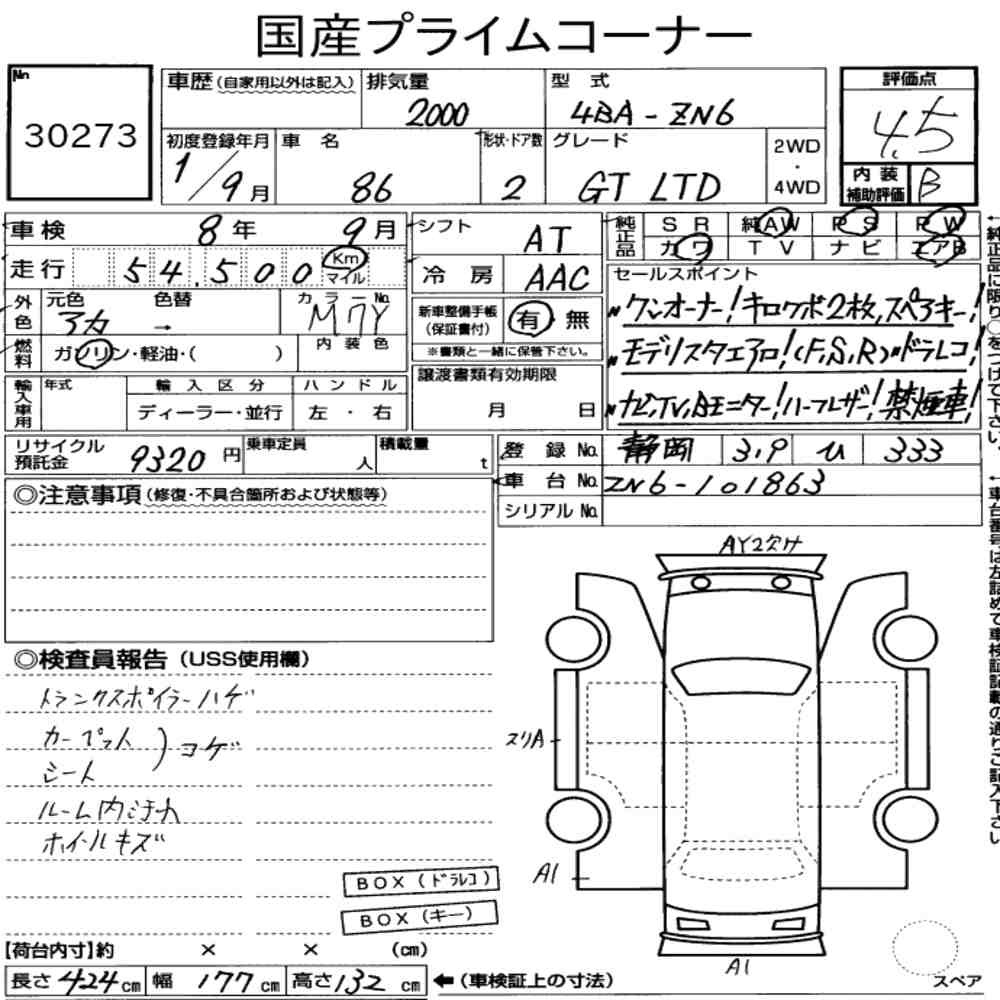 国産プライムコーナー
No. 30273
車歴(自家用以外は記入) 排気量 2000 型式 4BA-ZN6 評価点 4.5
初度登録年月 1/9月 車名 86 形状・ドア数 2 グレード GT LTD 2WD・4WD 内装補助評価 B
車検 8年 9月 シフト AT 純正品 SR 純AW PS PW
カワ TV ナビ エアB
走行 54,500 Km マイル 冷房 AAC セールスポイント
外色 元色 色替 カラーNo. M7Y
→
新車整備手帳(保証書付) 有 無
※書類と一緒に保管下さい。
ワンオーナー!キロクボ2枚,スペアキー!
燃料 ガソリン・軽油・( ) 内装色
モデリスタエアロ!(F,S,R)ドラレコ!
輸入車用 年式 輸入区分 ハンドル 譲渡書類有効期限
ディーラー・並行 左・右 月 日
ナビ,TV,Bモニター!ハーフレザー!禁煙車!
リサイクル預託金 9320円 乗車定員 人 積載量 t 登録No. 静岡 ひ 333
車台No. ZN6-101863
シリアルNo.
◎注意事項(修復・不具合箇所および状態等)
AY2欠け
◎検査員報告(USS使用欄)
トランクスポイラーハゲ
カーペット
シート
)コゲ
スリA
ルーム内汚れ
ホイールキズ
A1
BOX(ドラレコ)
BOX(キー)
A1
スペア
【荷台内寸】約 × × (cm)
長さ424cm 幅177cm 高さ132cm ←(車検証上の寸法)
←純正品に限り○をつけて下さい。
←車台番号は左詰めで車検証記載の通りご記入下さい